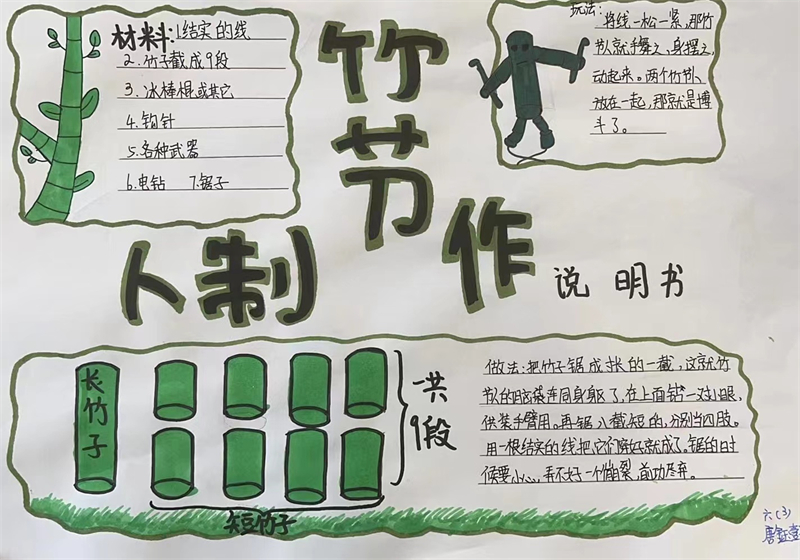 材料:1.结实的线
2.竹子截成9段
3.冰棒棍或其它
4.钩针
5.各种武器
6.电钻 7.锯子
竹节
人制作
说明书
玩法:将线一松一紧,那竹
节人就手舞之、身摆之,
动起来。两个竹节人
放在一起,那就是搏
斗了。
长竹子
一共9段
短竹子
做法:把竹子锯成张的一截,这就竹
节人的脑袋连同身躯了,在上面钻一对小眼,
供装手臂用。再锯八截短的,分别当四肢。
用一根结实的线把它们
就成了。锯的时
候要小心,弄不好一个崩裂,前功尽弃。
六(3)